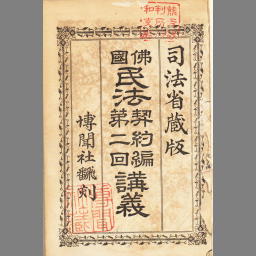 司法省蔵版
佛國民法契約編
第二回講義
博聞社飜刻